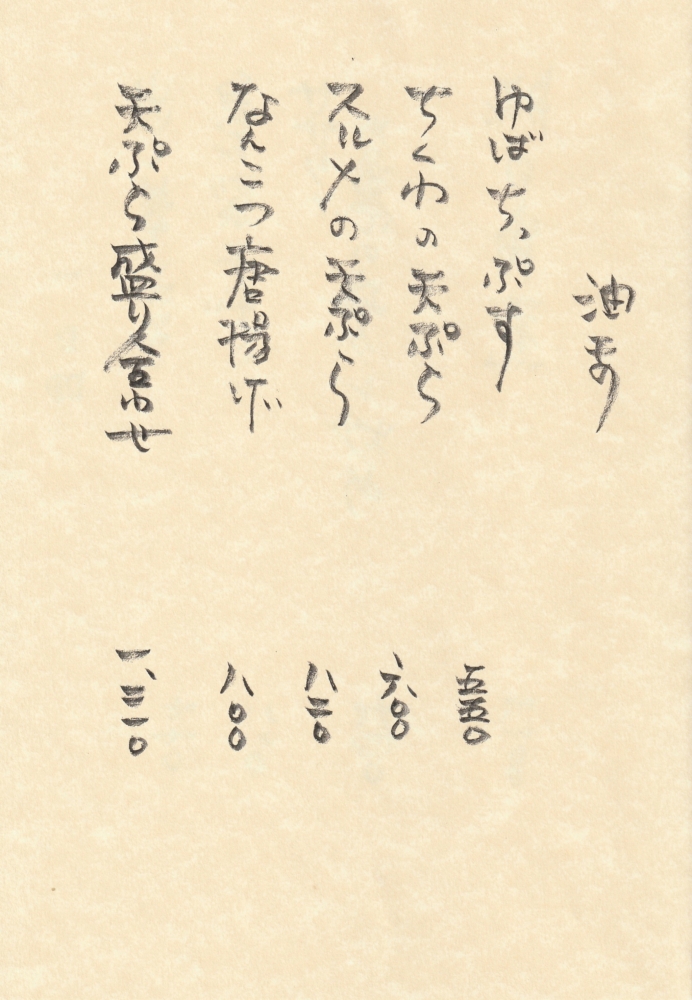 油もの
ゆばちっぷす 五五〇
ちくわの天ぷら 六〇〇
スルメの天ぷら 八三〇
なんこつ唐揚げ 八〇〇
天ぷら盛り合わせ 一、三一〇